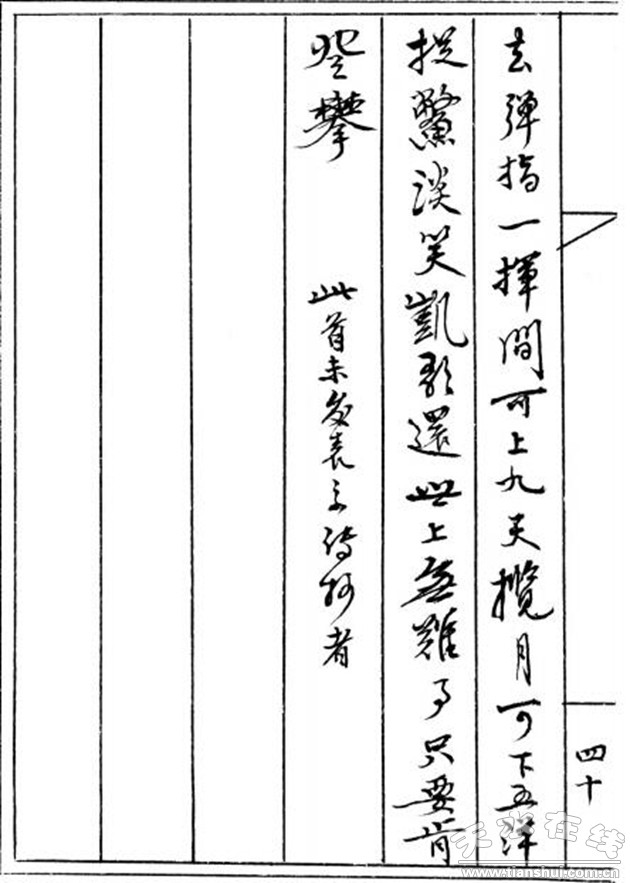 四十
去彈指一揮間可上九天攬月可下五洋
捉鱉談笑凱歌還世上無難事只要肯
登攀 此首未发表系传抄者
天水在线
www.tianshui.com.cn